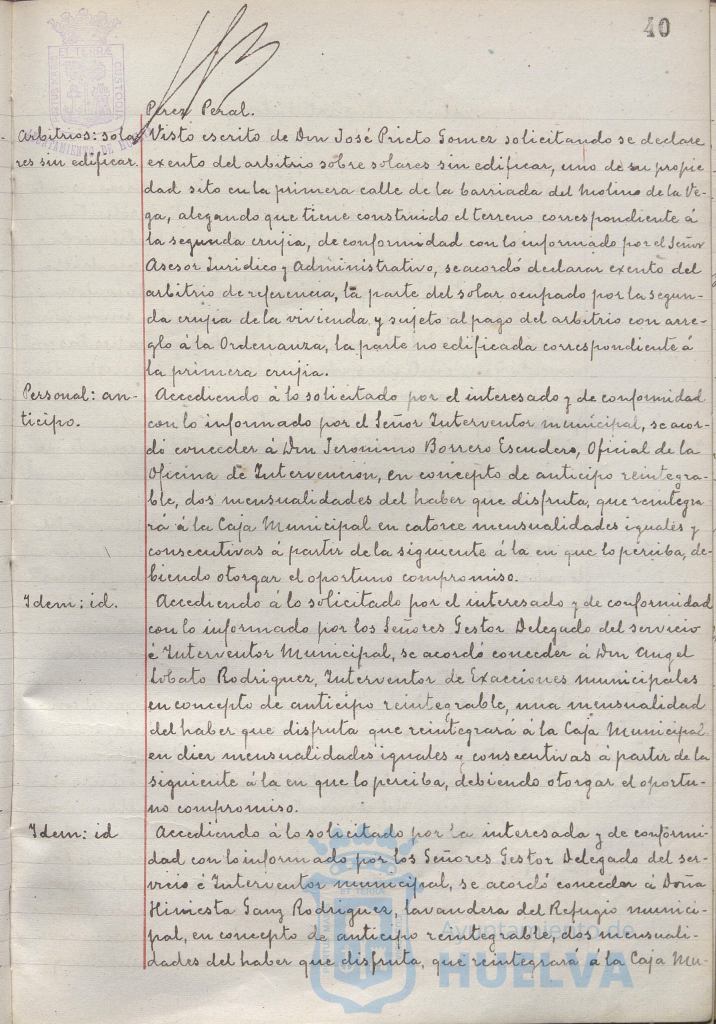 40
Perez Peral.
Arbitrios: sola
res sin edificar.
Visto escrito de Don José Prieto Gomez solicitando se declare
exento del arbitrio sobre solares sin edificar, uno de su propie
dad sito en la primera calle de la barriada del Molino de la Ve-
ga, alegando que tiene construido el terreno correspondiente á
la segunda crujia, de conformidad con lo informado por el Señor
Asesor Juridico y Administrativo, se acordó declarar exento del
arbitrio de referencia, la parte del solar ocupado por la segun-
da crujia de la vivienda y sujeto al pago del arbitrio con arre-
glo á la Ordenanza, la parte no edificada correspondiente á
la primera crujia.
Personal: an-
ticipo.
Accediendo á lo solicitado por el interesado y de conformidad
con lo informado por el Señor Interventor municipal, se acor-
dó conceder á Don Jeronimo Borrero Escudero, Oficial de la
Oficina de Intervencion, en concepto de anticipo reintegra-
ble, dos mensualidades del haber que disfruta, que reintegra
rá á la Caja Municipal en catorce mensualidades iguales y
consecutivas á partir de la siguiente á la en que lo perciba, de-
biendo otorgar el oportuno compromiso.
Idem: id.
Accediendo á lo solicitado por el interesado y de conformidad
con lo informado por los Señores Gestor Delegado del servicio
é Interventor Municipal, se acordó conceder á Don Angel
Lobato Rodriguez, Interventor de Exacciones municipales
en concepto de anticipo reintegrable, una mensualidad
del haber que disfruta que reintegrará á la Caja Municipal
en diez mensualidades iguales y consecutivas á partir de la
siguiente á la en que lo perciba, debiendo otorgar el oportu-
no compromiso.
Idem: id
Accediendo á lo solicitado por la interesada y de conformi-
dad con lo informado por los Señores Gestor Delegado del ser-
vicio é Interventor municipal, se acordó conceder á Doña
Hiniesta Sanz Rodriguez, lavandera del Refugio munici-
pal, en concepto de anticipo reintegrable, dos mensuali-
dades del haber que disfruta, que reintegrará á la Caja Mu-
Ayuntamiento de
HUELVA